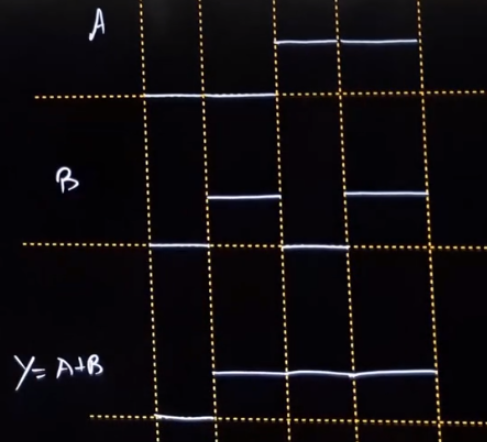 A
B
Y= A+B